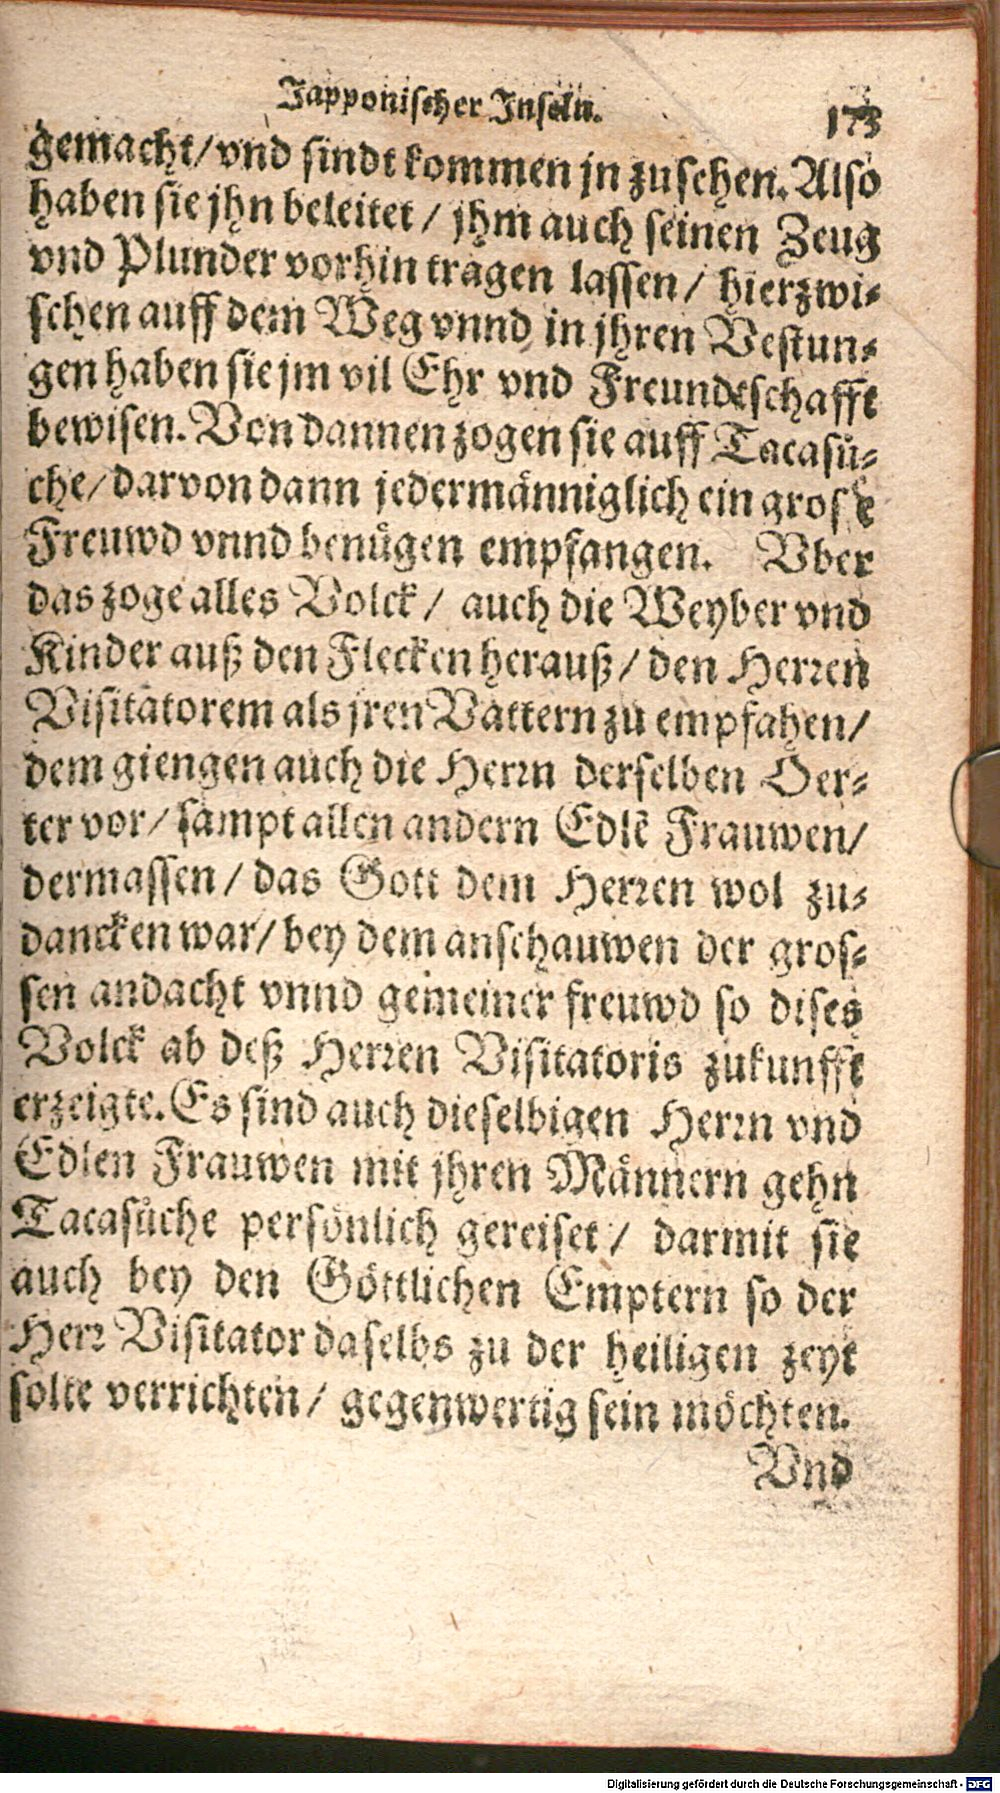 Japponischer Inseln.
173
gemacht/vnd sindt kommen jn zusehen. Also
haben sie jhn beleitet / jhm auch seinen Zeug
vnd Plunder vorhin tragen lassen / hierzwi-
schen auff dem Weg vnnd in jhren Vestun-
gen haben sie jm vil Ehr vnd Freundtschafft
bewisen. Von dannen zogen sie auff Tacasü-
che/darvon dann jedermänniglich ein grosse
Freuwd vnnd benügen empfangen. Vber
das zoge alles Volck / auch die Weyber vnd
Kinder auß den Flecken herauß / den Herren
Visitatorem als jren Vattern zu empfahen/
dem giengen auch die Herrn derselben Oer-
ter vor / sampt allen andern Edlē Frauwen/
dermassen / das Gott dem Herren wol zu-
dancken war/ bey dem anschauwen der gros-
sen andacht vnnd gemeiner freuwd so dises
Volck ab deß Herren Visitatoris zukunfft
erzeigte. Es sind auch dieselbigen Herrn vnd
Edlen Frauwen mit jhren Männern gehn
Tacasüche persönlich gereiset / darmit sie
auch bey den Göttlichen Emptern so der
Herr Visitator daselbs zu der heiligen zeyt
solte verrichten / gegenwertig sein möchten.
Vnd
Digitalisierung gefördert durch die Deutsche Forschungsgemeinschaft - DFG